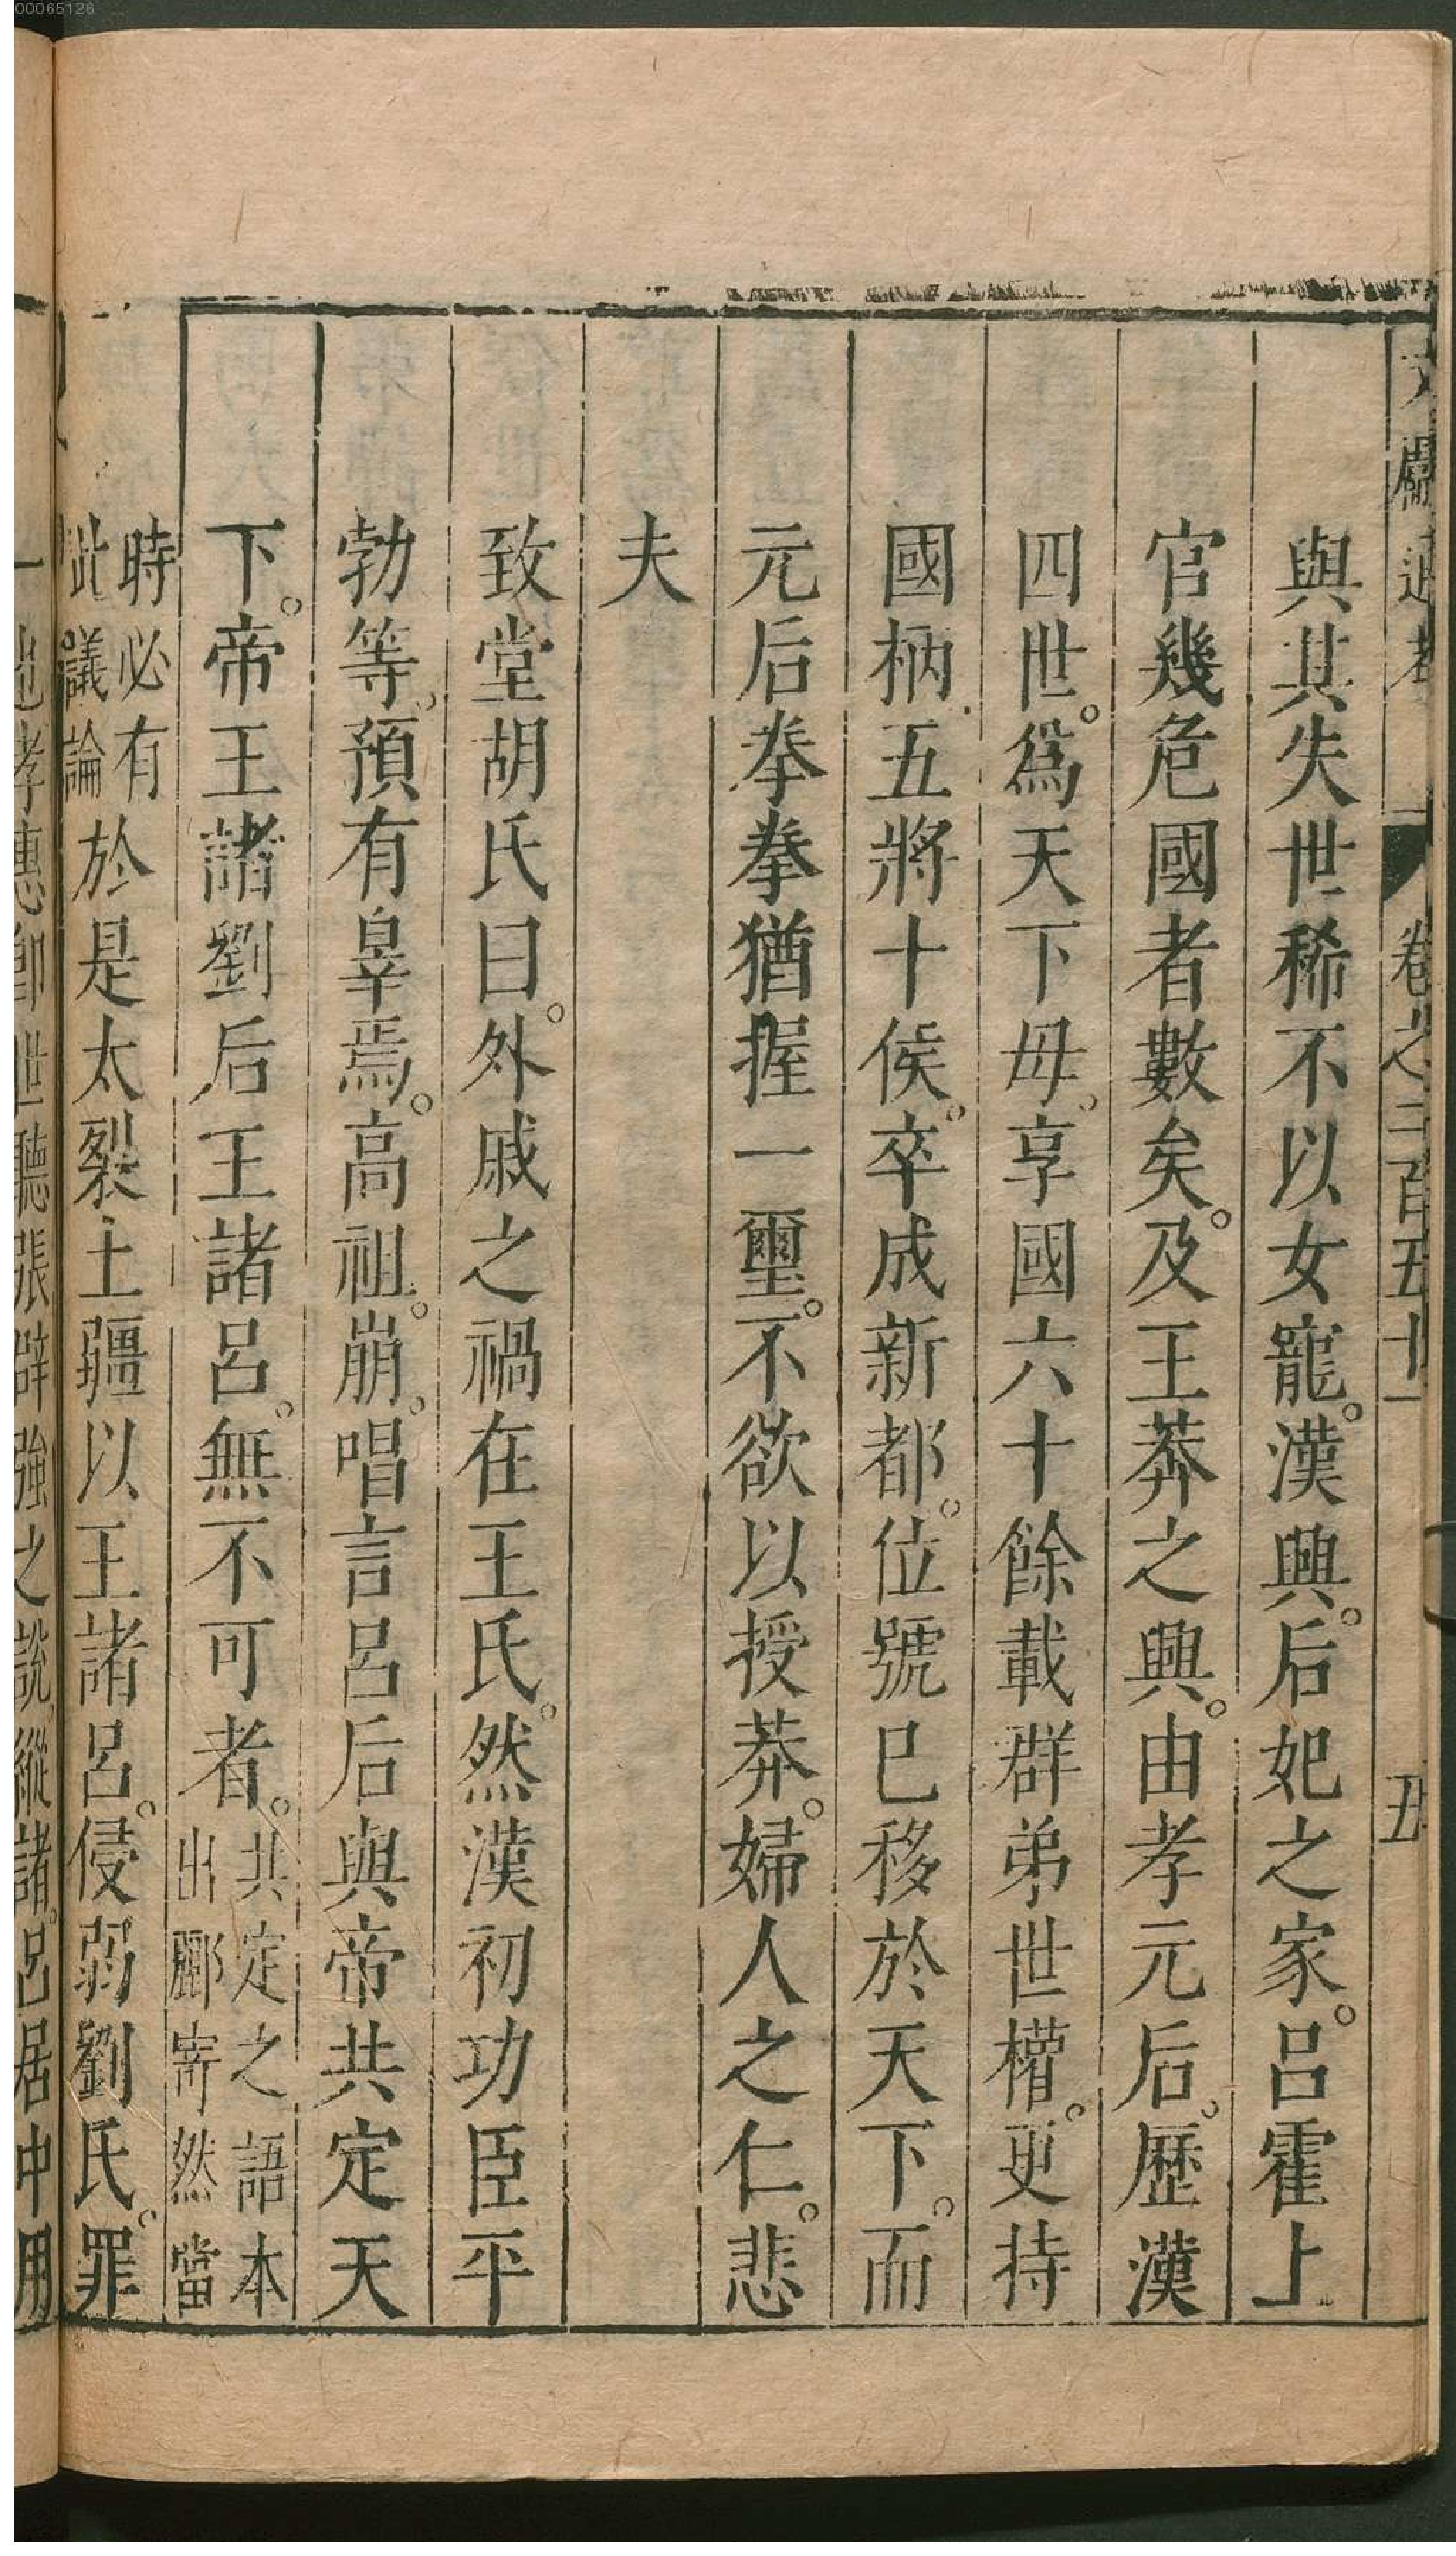 00065126
文獻通考 卷之二百五十一 五
與其失世稀不以女寵。漢興。后妃之家。呂霍上
官幾危國者數矣。及王莽之興。由孝元后。歷漢
四世。爲天下母。享國六十餘載群弟世權。更持
國柄。五將十侯。卒成新都。位號已移於天下。而
元后拳拳猶握一璽。不欲以授莽。婦人之仁。悲
夫
致堂胡氏曰。外戚之禍在王氏。然漢初功臣平
勃等。預有辠焉。高祖。崩。唱言呂后與帝共定天
下。帝王諸劉后王諸呂。無不可者。共定之語本
出酈寄然當
時必有
此議論於是太裂土疆以王諸呂。侵弱劉氏。罪
一也孝惠卽世聽張辟強之說。縱諸。呂居中用